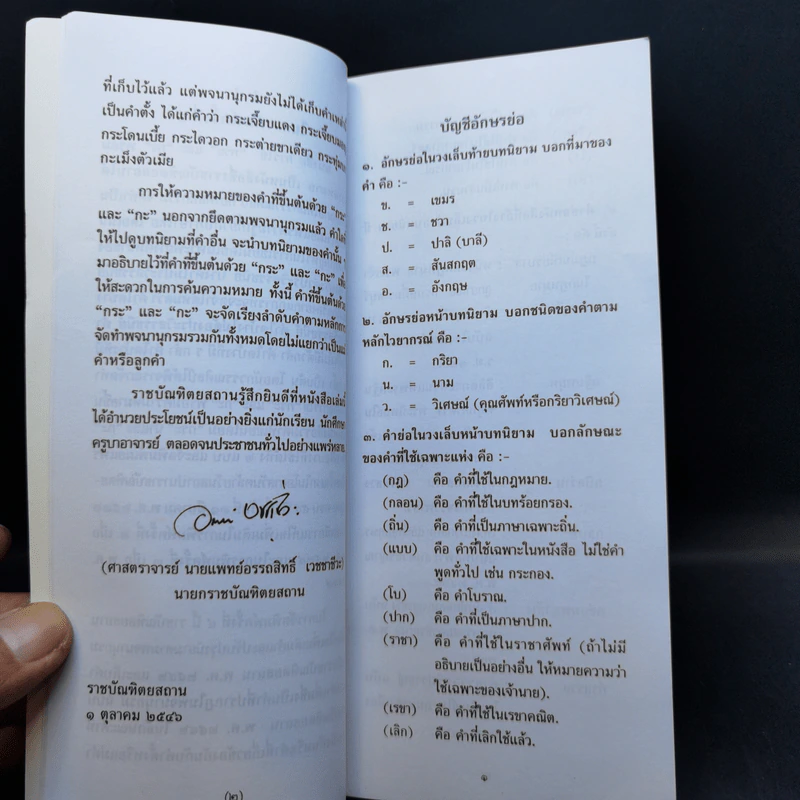 ที่เก็บไว้แล้ว แต่พจนานุกรมยังไม่ได้เก็บคำเหล่านี้
เป็นคำตั้ง ได้แก่คำว่า กระเจี๊ยบแดง กระเจี๊ยบมอญ
กระโดนเบี้ย กระไดวอก กระต่ายขาเดียว
กะเม็งตัวเมีย
การให้ความหมายของคำที่ขึ้นต้นด้วย “กระ”
และ “กะ” นอกจากยึดตามพจนานุกรมแล้ว คำใด
ให้ไปดูบทนิยามที่คำอื่น จะนำบทนิยามของคำนั้น
มาอธิบายไว้ที่คำที่ขึ้นต้นด้วย “กระ” และ “กะ”
ให้สะดวกในการค้นความหมาย ทั้งนี้ คำที่ขึ้นต้นด้วย
“กระ” และ “กะ” จะจัดเรียงลำดับคำตามหลักการ
จัดทำพจนานุกรมรวมกันทั้งหมดโดยไม่แยกว่าเป็นแม่
คำหรือลูกคำ
ราชบัณฑิตยสถานรู้สึกยินดีที่หนังสือเล่มนี้
ได้อำนวยประโยชน์เป็นอย่างยิ่งแก่นักเรียน นักศึกษา
ครูบาอาจารย์ ตลอดจนประชาชนทั่วไปอย่างแพร่หลาย
(ศาสตราจารย์ นายแพทย์อรรถสิทธิ์ เวชชาชีวะ)
นายกราชบัณฑิตยสถาน
ราชบัณฑิตยสถาน
๑ ตุลาคม ๒๕๔๖
(๒)
บัญชีอักษรย่อ
๑. อักษรย่อในวงเล็บท้ายบทนิยาม บอกที่มาของ
คำ คือ :-
ข. = เขมร
ช. = ชวา
ป. = ปาลิ (บาลี)
ส. = สันสกฤต
อ. = อังกฤษ
๒. อักษรย่อหน้าบทนิยาม บอกชนิดของคำตาม
หลักไวยากรณ์ คือ :-
ก. = กริยา
น. = นาม
ว. = วิเศษณ์ (คุณศัพท์หรือกริยาวิเศษณ์)
๓. คำย่อในวงเล็บหน้าบทนิยาม บอกลักษณะ
ของคำที่ใช้เฉพาะแห่ง คือ :-
(กฎ) คือ คำที่ใช้ในกฎหมาย.
(กลอน) คือ คำที่ใช้ในบทร้อยกรอง.
(ถิ่น) คือ คำที่เป็นภาษาเฉพาะถิ่น.
(แบบ) คือ คำที่ใช้เฉพาะในหนังสือ ไม่ใช่คำ
พูดทั่วไป เช่น กระกอง.
(โบ) คือ คำโบราณ.
(ปาก) คือ คำที่เป็นภาษาปาก.
(ราชา) คือ คำที่ใช้ในราชาศัพท์ (ถ้าไม่มี
อธิบายเป็นอย่างอื่น ให้หมายความว่า
ใช้เฉพาะของเจ้านาย).
(เรขา) คือ คำที่ใช้ในเรขาคณิต.
(เลิก) คือ คำที่เลิกใช้แล้ว.
๑